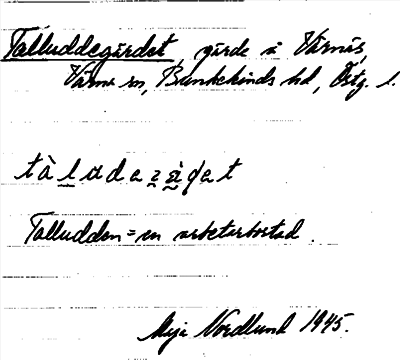 Talluddegärdet, gärde å Värnäs,
Vårna sn, Bankekinds hd, Östg. l.
Talludden = en arbetarbostad.
Maja Nordlund 1945.